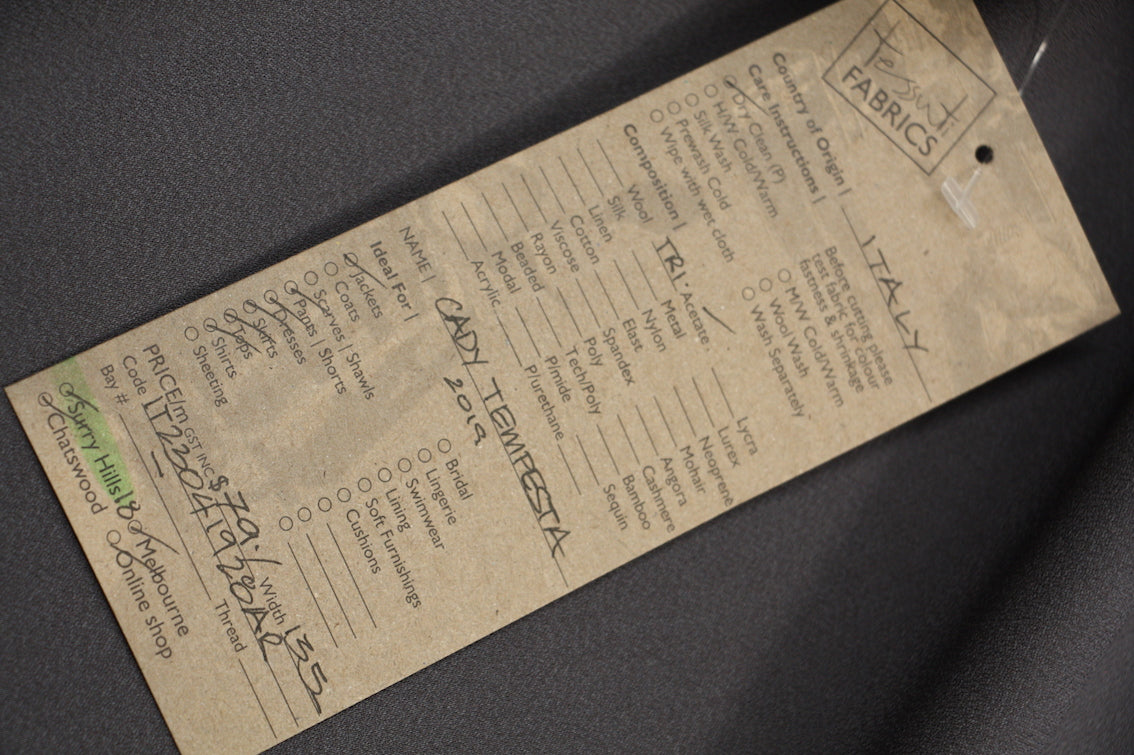 tessuti
FABRICS
Country of Origin | ITALY
Care Instructions |
Dry Clean (P)
H/W Cold/Warm
Silk Wash
Prewash Cold
Wipe with wet cloth
Before cutting please
test fabric for colour
fastness & shrinkage
M/W Cold/Warm
Wool Wash
Wash Separately
Composition |
Wool
Silk
Linen
Cotton
Viscose
Rayon
Beaded
Modal
Acrylic
TRI. Acetate
Metal
Nylon
Elast
Spandex
Poly
Tech/Poly
P/mide
P/urethane
Lycra
Lurex
Neoprene
Mohair
Angora
Cashmere
Bamboo
Sequin
NAME | CADY TEMPESTA
2019
Ideal For |
Jackets
Coats
Scarves | Shawls
Pants | Shorts
Dresses
Skirts
Tops
Shirts
Sheeting
Bridal
Lingerie
Swimwear
Lining
Soft Furnishings
Cushions
PRICE/m GST INC $79./ Width 135
Code
Bay # – Thread
Surry Hills 18
Chatswood
Melbourne
Online shop